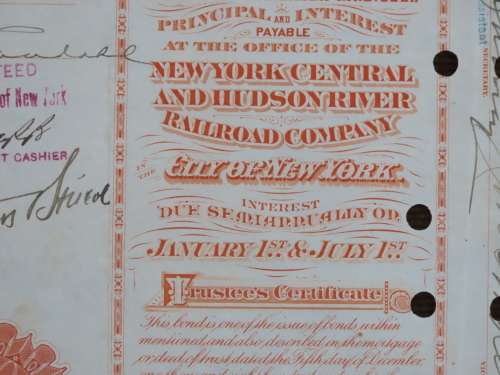 PRINCIPAL AND INTEREST
PAYABLE
AT THE OFFICE OF THE
NEW YORK CENTRAL
AND HUDSON RIVER
RAILROAD COMPANY
IN THE
CITY OF NEW YORK.
INTEREST
DUE SEMIANNUALLY ON
JANUARY 1ST. & JULY 1ST.
Trustee's Certificate
This bond is one of the issue of bonds, within
mentioned, and also described, in the mortgage
or deed of trust dated the Fifth day of December,
TEED
of New York
T CASHIER
SECRETARY.